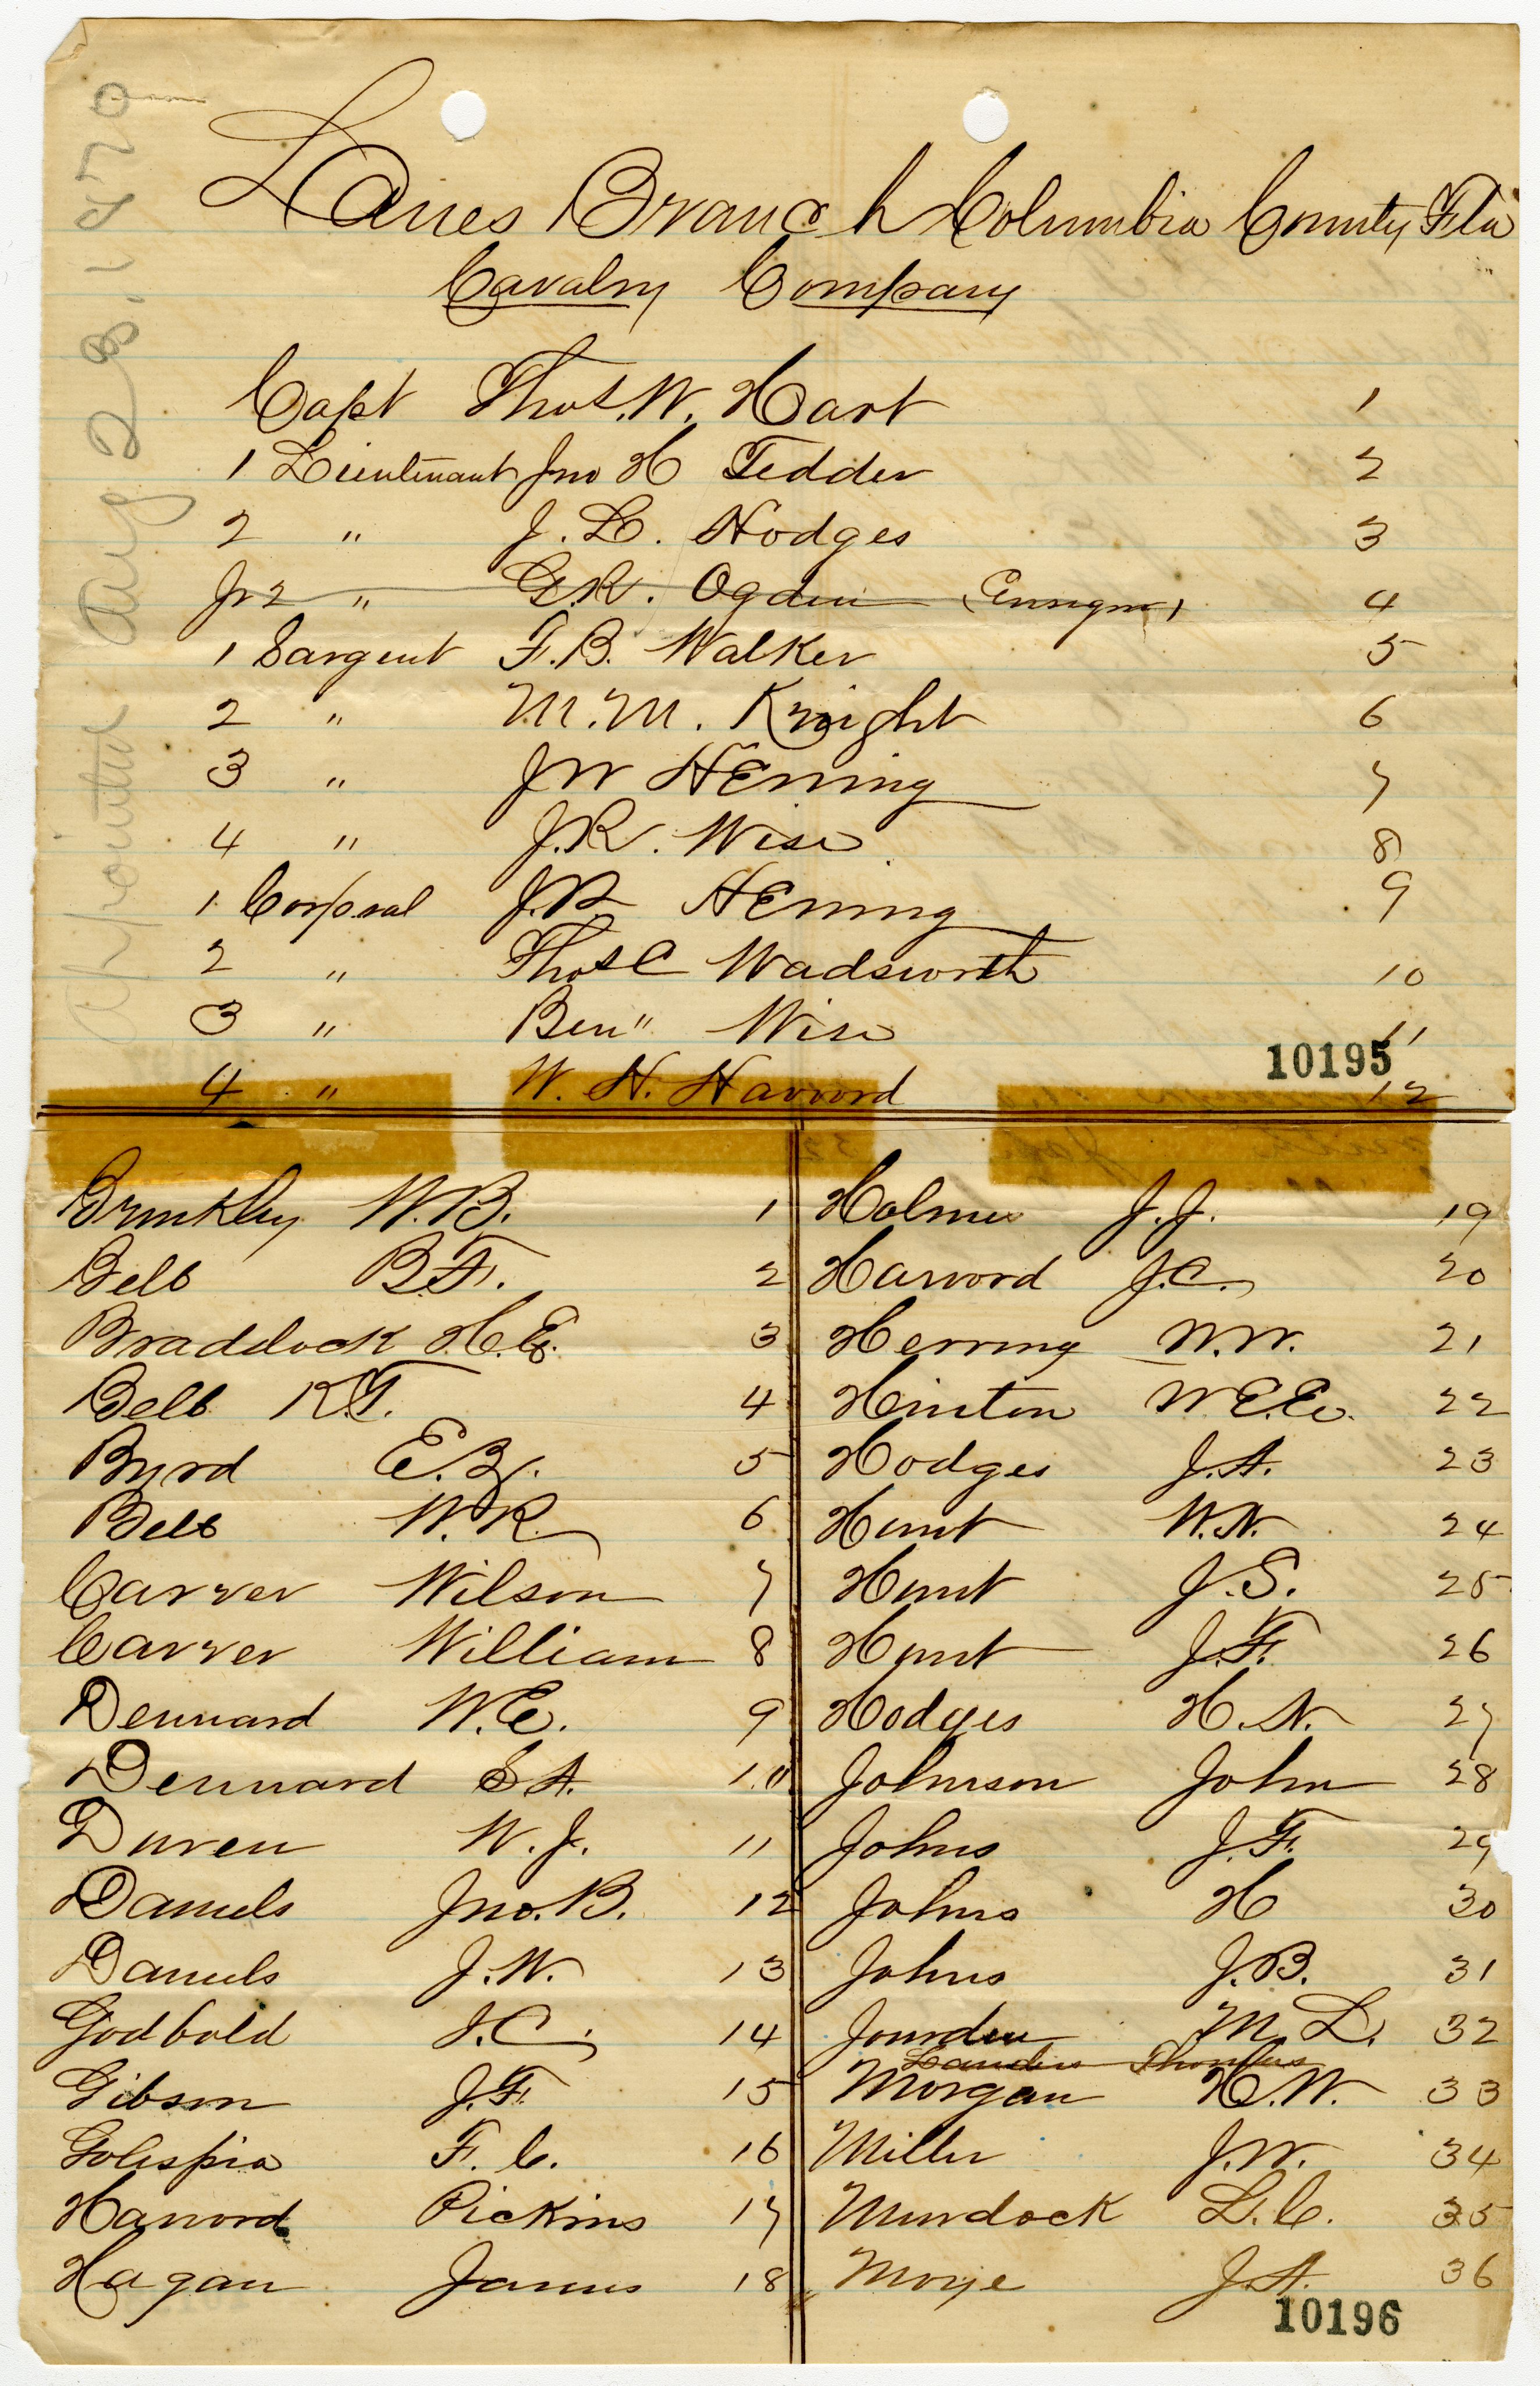 Lanes Branch Columbia County Fla
Cavalry Company
Capt Thos. W. Hart 1
1 Lieutenant Jno H Tedder 2
2 " J. L. Hodges 3
Jr 2 " G.R. Ogden (Ensign) 4
1 Sargent F.B. Walker 5
2 " M.M. Knight 6
3 " JW HErring 7
4 " J.R. Wise 8
1 Corporal J.R HErring 9
2 " Thos C Wadsworth 10
3 " Ben" Wise 11
10195
4 " W. H. Harvord 12
Brinkley W.B. 1
Bell B.F. 2
Braddock H.E. 3
Bell R.T. 4
Byrd E.B. 5
Bell W.R. 6
Carver Wilson 7
Carver William 8
Dennard W.E. 9
Dennard S A. 10
Duren W.J. 11
Daniels Jno. B. 12
Daniels J.W. 13
Godbold J.C. 14
Gibson J.F. 15
Golespia F.C. 16
Harvord Pickins 17
Hagan James 18
Holmes J.J. 19
Harvord J.C. 20
Herring W.W. 21
Hinton W.E.E. 22
Hodges J.A. 23
Hunt W.N. 24
Hunt J.S. 25
Hunt J.F. 26
Hodges H.N. 27
Johnson John 28
Johns J.F. 29
Johns H 30
Johns J.B. 31
Jourden M.L. 32
Landers Thomas
Morgan H.W. 33
Miller J.W. 34
Murdock L.C. 35
Moye J.A. 36
10196
Appointed Aug 28, 1870